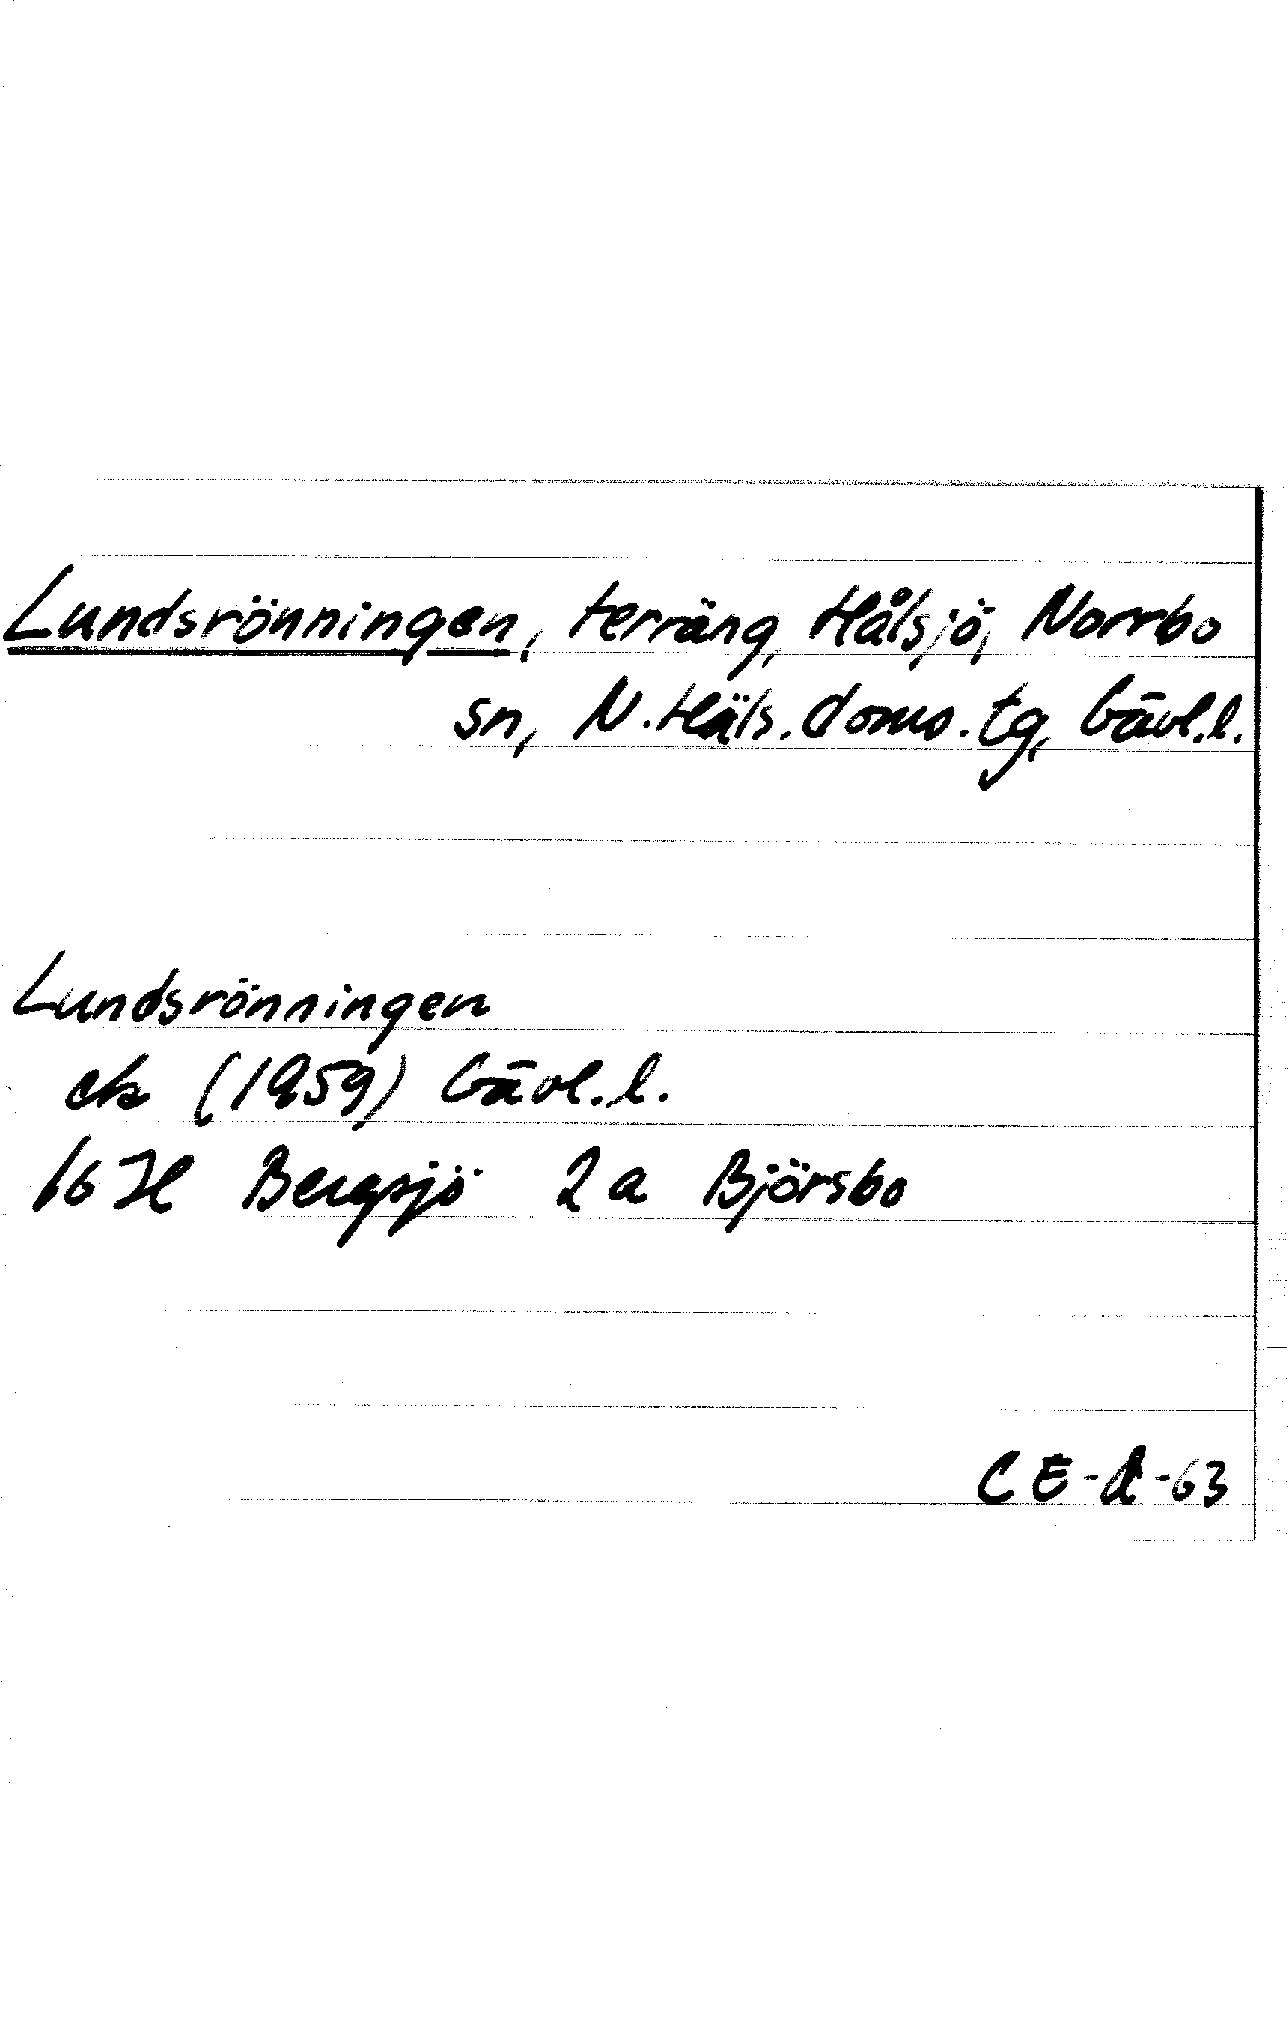 Lundsrönningen, terräng, Hålsjö, Norrbo
sn, N. Häls. doms. tg, Gävl.l.
Lundsrönningen
ek (1959) Gävl.l.
16 H Bergsjö 2 a Björsbo
CE-d-63